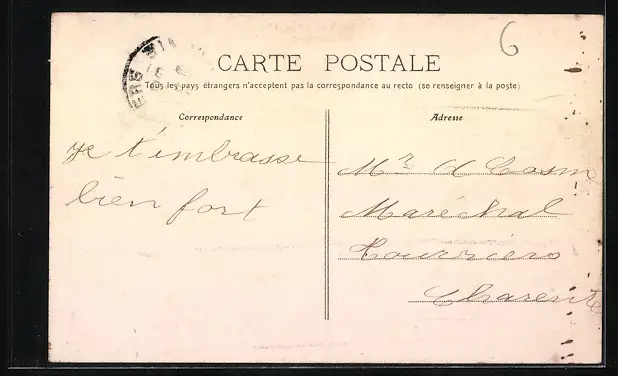 6
CARTE POSTALE
Tous les pays étrangers n'acceptent pas la correspondance au recto (se renseigner à la poste)
Correspondance
Adresse
je t'embrasse
bien fort
Mr
Maréchal
Tourriers
Charente